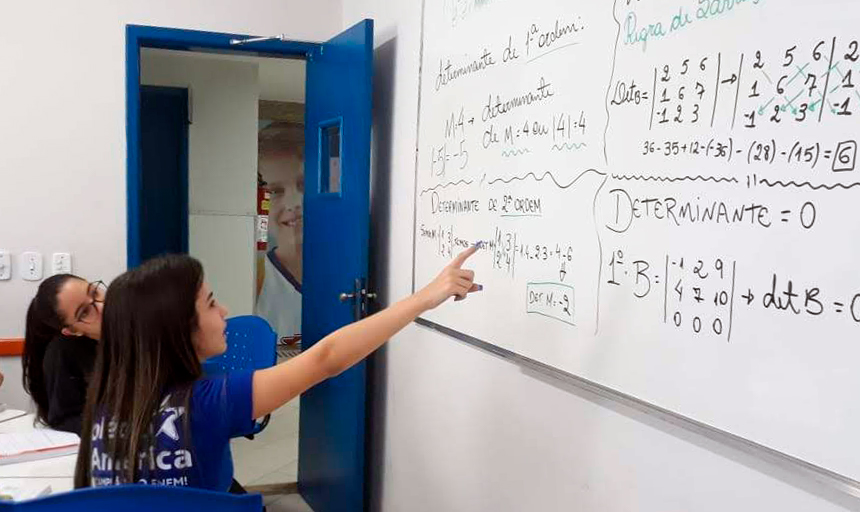 determinante de 1ª ordem:
M=4 → determinante
de M=4 ou |4|=4
|-5|=-5
DETERMINANTE DE 2ª ORDEM
|1 3|
|2 4| = 1.4-2.3 = 4-6
DET M=-2
Regra de
Det B= |2 5 6| → |2 5 6| 2
|1 6 7| |1 6 7| 1
|-1 2 3| |-1 2 3| -1
36-35+12-(-36)-(28)-(15)=6
DETERMINANTE = 0
1º. B= |-1 2 9|
|4 7 10| → det B = 0
|0 0 0|
América
ENEM!